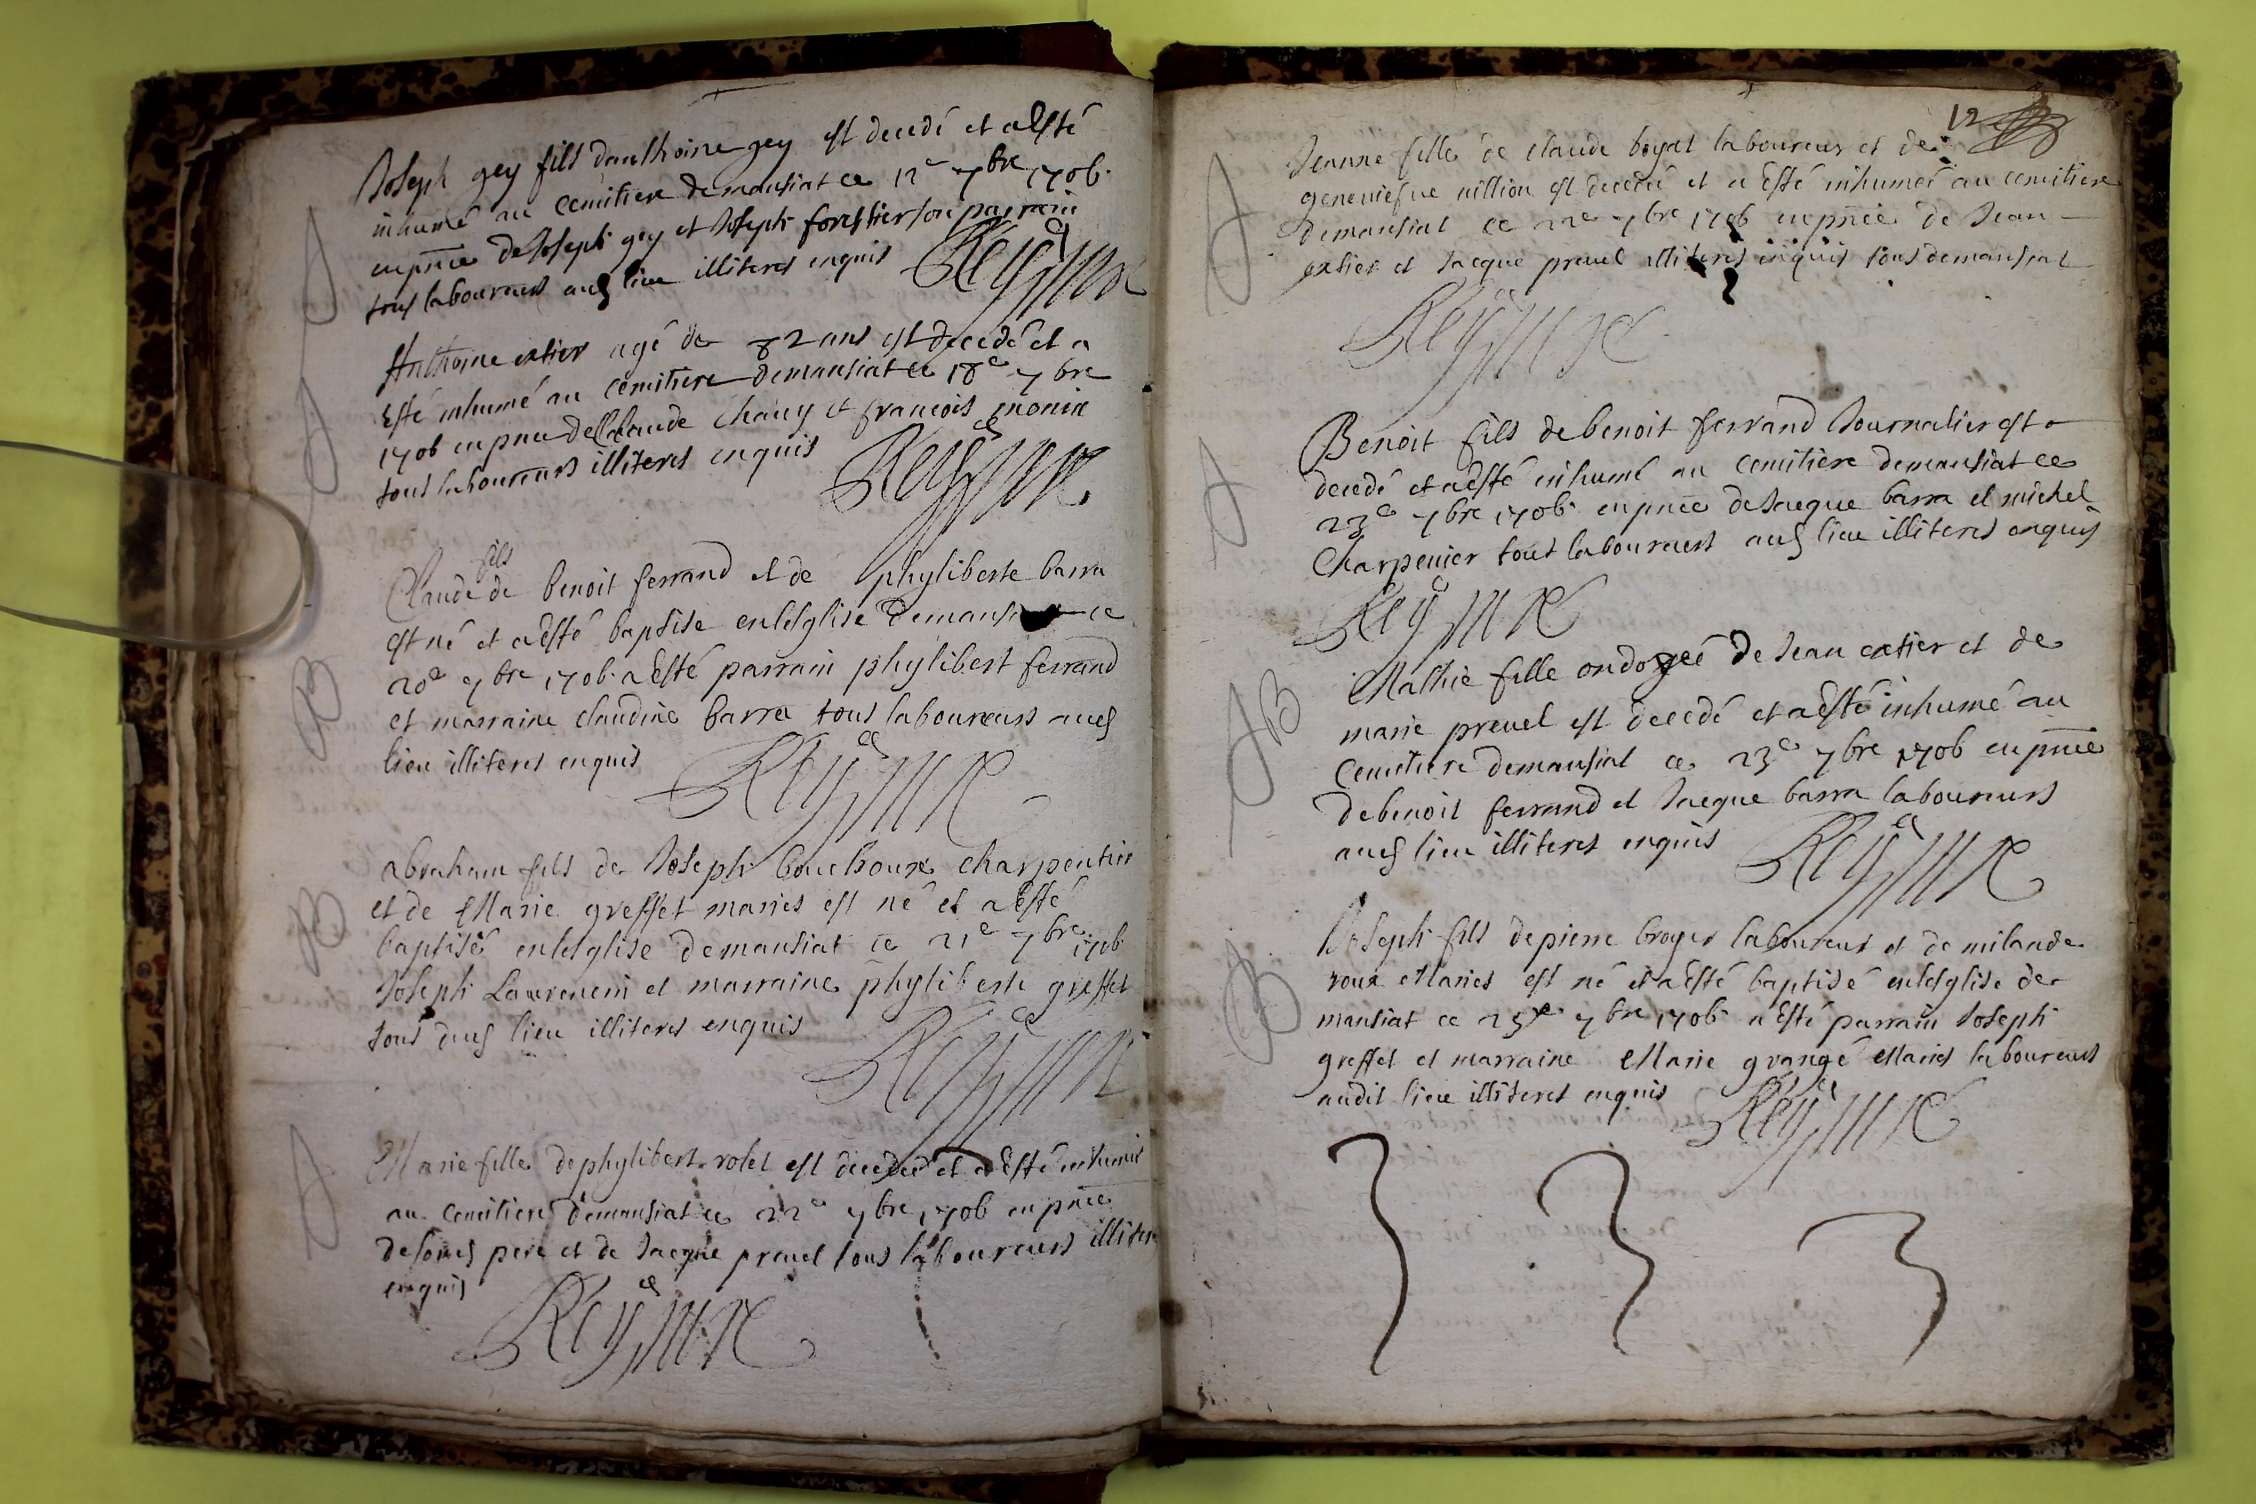 Joseph gey fils danthoine gey est decedé et a Esté
inhumé au cemitiere demansiat ce 12e 7bre 1706
en pnce de Joseph gey et Joseph forestier son parrain
tous laboureurs aud lieu illiteres enquis Rey
Anthoine extier agé de 82 ans est decedé et a
Esté inhumé au cemitiere demansiat ce 18e 7bre
1706 en pnce de Claude Chauy et francois monin
tous laboureurs illiteres enquis Rey
fils
Claude de benoit ferrand et de phyliberte barra
est né et a esté baptise en leglise demansiat ce
20e 7bre 1706 a Esté parrain phylibert ferrand
et marraine claudine barra tous laboureurs aud
lieu illiteres enquis Rey
abraham fils de Joseph bouchoux charpentier
et de Marie greffet maries est né et a Esté
baptisé en leglise demansiat ce 21e 7bre 1706
Joseph Laurencin et marraine phyliberte greffet
tous dud lieu illiteres enquis Rey
Marie fille de phylibert rolet est decedeé et a Esté inhumeé
au cemitiere demansiat ce 22e 7bre 1706 en pnce
de sond pere et de Jacque preuel tous laboureurs illitere
enquis
Rey
12
Jeanne fille de claude boyat laboureur et de
geneuiefue million est decedeé et a Esté inhumeé au cemitiere
demansiat ce 22e 7bre 1706 en pnce de Jean
extier et Jacque preuel illiteres enquis tous demansiat
Rey
Benoit fils de benoit ferrand Journalier est
decedé et a Esté inhumé au cemitiere demansiat ce
23e 7bre 1706 en pnce de Jacque barra et michel
Charpenier tous laboureurs aud lieu illiteres enquis
Rey
Mathie fille ondoyeé de Jean extier et de
marie preuel est decedé et a Esté inhumé au
Cemitiere demansiat ce 23e 7bre 1706 en pnce
de benoit ferrand et Jacque barra laboureurs
aud lieu illiteres enquis Rey
Joseph fils de pierre broyer laboureur et de milande
roux Maries est né et a Esté baptisé en leglise de
mansiat ce 25e 7bre 1706 a Esté parrain Joseph
greffet et marraine Marie grangé Maries laboureurs
audit lieu illiteres enquis Rey